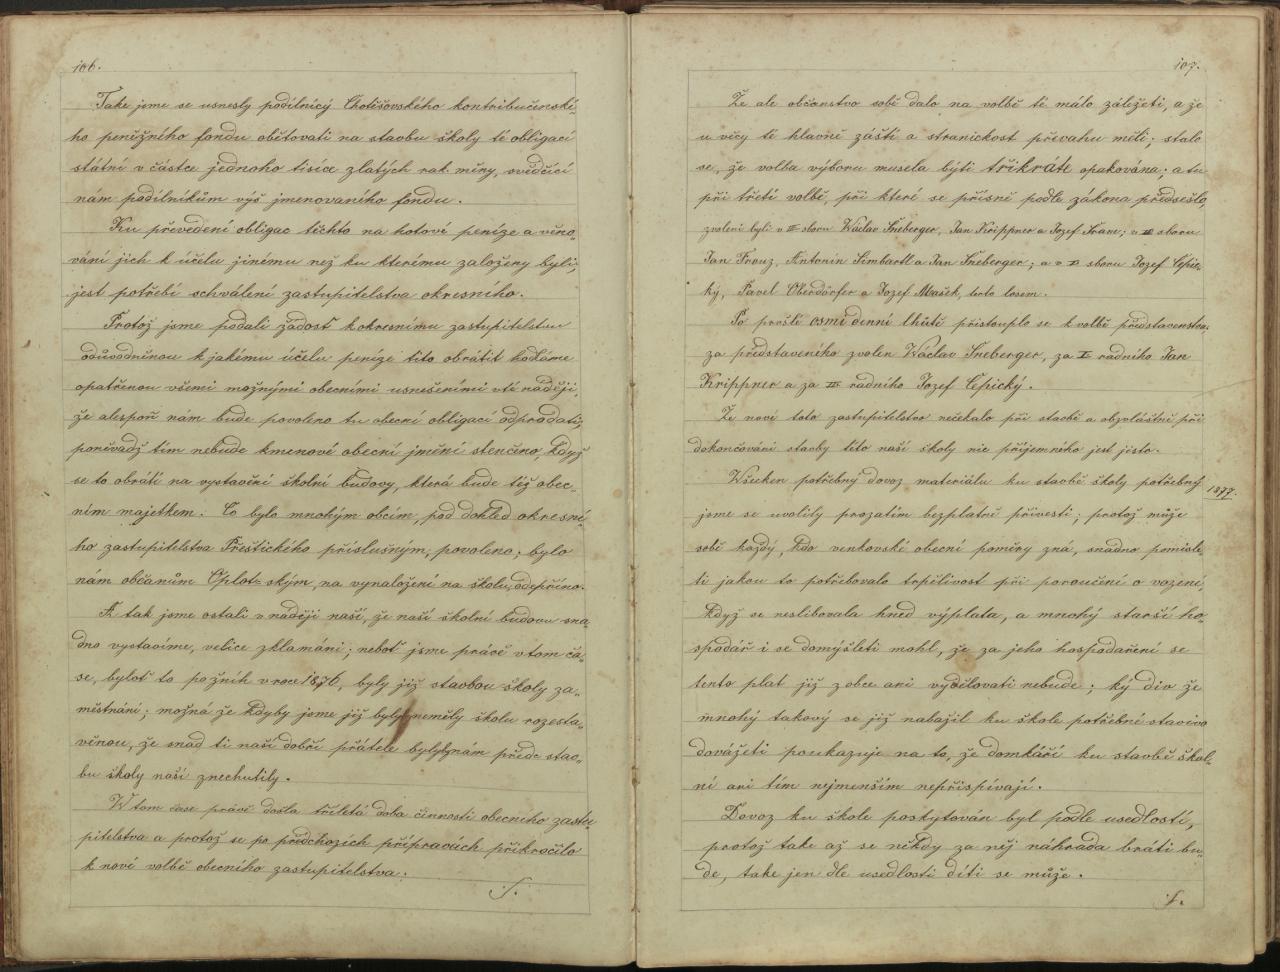 106.
Take jsme se usnesly podílnicý Chotěšovského kontribučenské-
ho peněžného fondu obětovati na stavbu školy té obligací
státní v částce jednoho tisíce zlatých rak. měny, svědčící
nám podílníkům výš jmenovaního fondu.
Ku převedení obligac těchto na hotové peníze a věno-
vání jich k účelu jinému než ku kterému založeny byli,
jest potřebí schválení zastupitelstva okresního.
Protož jsme podali žádosť k okresnímu zastupitelstvu
odůvodněnou k jakému účelu peníze tito obrátit hodláme
opatřenou všemi možnými obecními usnešeními v té náději,
že alespoň nám bude povoleno tu obecní obligací odprodati,
poněvadž tím nebude kmenové obecní jmění stenčeno, když
se to obrátí na vystavění školní budovy, která bude též obec-
ním majetkem. Co bylo mnohým obcím, pod dohled okresní-
ho zastupitelstva Přeštického příslušným, povoleno; bylo
nám občanům Oplot-ským, na vynaložení na školu, odepříno.
A tak jsme ostali v náději naší, že naší školní budovu sna-
dno vystavíme, velice zklamáni; neboť jsme právě v tom ča-
se, byloť to po žních v roce 1876, byly již stavbou školy za-
městnáni; možná že kdyby jsme již byly neměly školu rozesta-
věnou, že snad ti naší dobří přátele bylyby nám přede stav-
bu školy naší znechutily.
W tom čase právě došla tříletá doba činnosti obecního zastu-
pitelstva a protož se po předchozích přípravách přikročilo
k nové volbě obecního zastupitelstva.
./.
107.
Že ale občanstvo sobě dalo na volbě té málo záležeti, a že
u věcy té hlavně zášti a stranickost převahu měli; stalo
se, že volba výboru musela býti třikráte opakována; a tu
při třetí volbě, při které se přísně podle zákona předsešlo,
zvoleni byli v III sboru Wáclav Šneberger, Jan Krippner a Jozef Šrám; v II sboru
Jan Frouz, Antonín Simbartl a Jan Šneberger; a v I sboru Jozef Čepic-
ký, Pavel Oberdörfer a Jozef Mašek, tento losem.
Po prošlé osmi denní lhůtě přistouplo se k volbě představenstva,
za představeného zvolen Wáclav Šneberger, za I radního Jan
Krippner a za II radního Jozef Čepický.
Že nové toto zastupitelstvo nečekalo při stavbě a obzvláštně při
dokončování stavby této naší školy nic příjemného jest jisto.
Wšecken potřebný dovoz materiálu ku stavbě školy potřebný
1877.
jsme se uvolily prozatím bezplatně přivesti; protož může
sobě každý, kdo venkovské obecní poměry zná, snadno pomisle-
ti jakou to potřebovalo trpělivosť při poroučení o vození,
když se neslibovala hned výplata, a mnohý starší ho-
spodář i se domýšleti mohl, že za jeho hospodaření se
tento plat již z obce ani vydělovati nebude; ký div že
mnohý takový se již nabažil ku škole potřebné stavivo
dovážeti poukazuje na to, že domkáří ku stavbě škol-
ní ani tím nejmenším nepřispívají.
Dovoz ku škole poskytován byl podle usedlostí,
protož take až se někdy za něj náhrada bráti bu-
de, take jen dle usedlosti díti se může.
./.